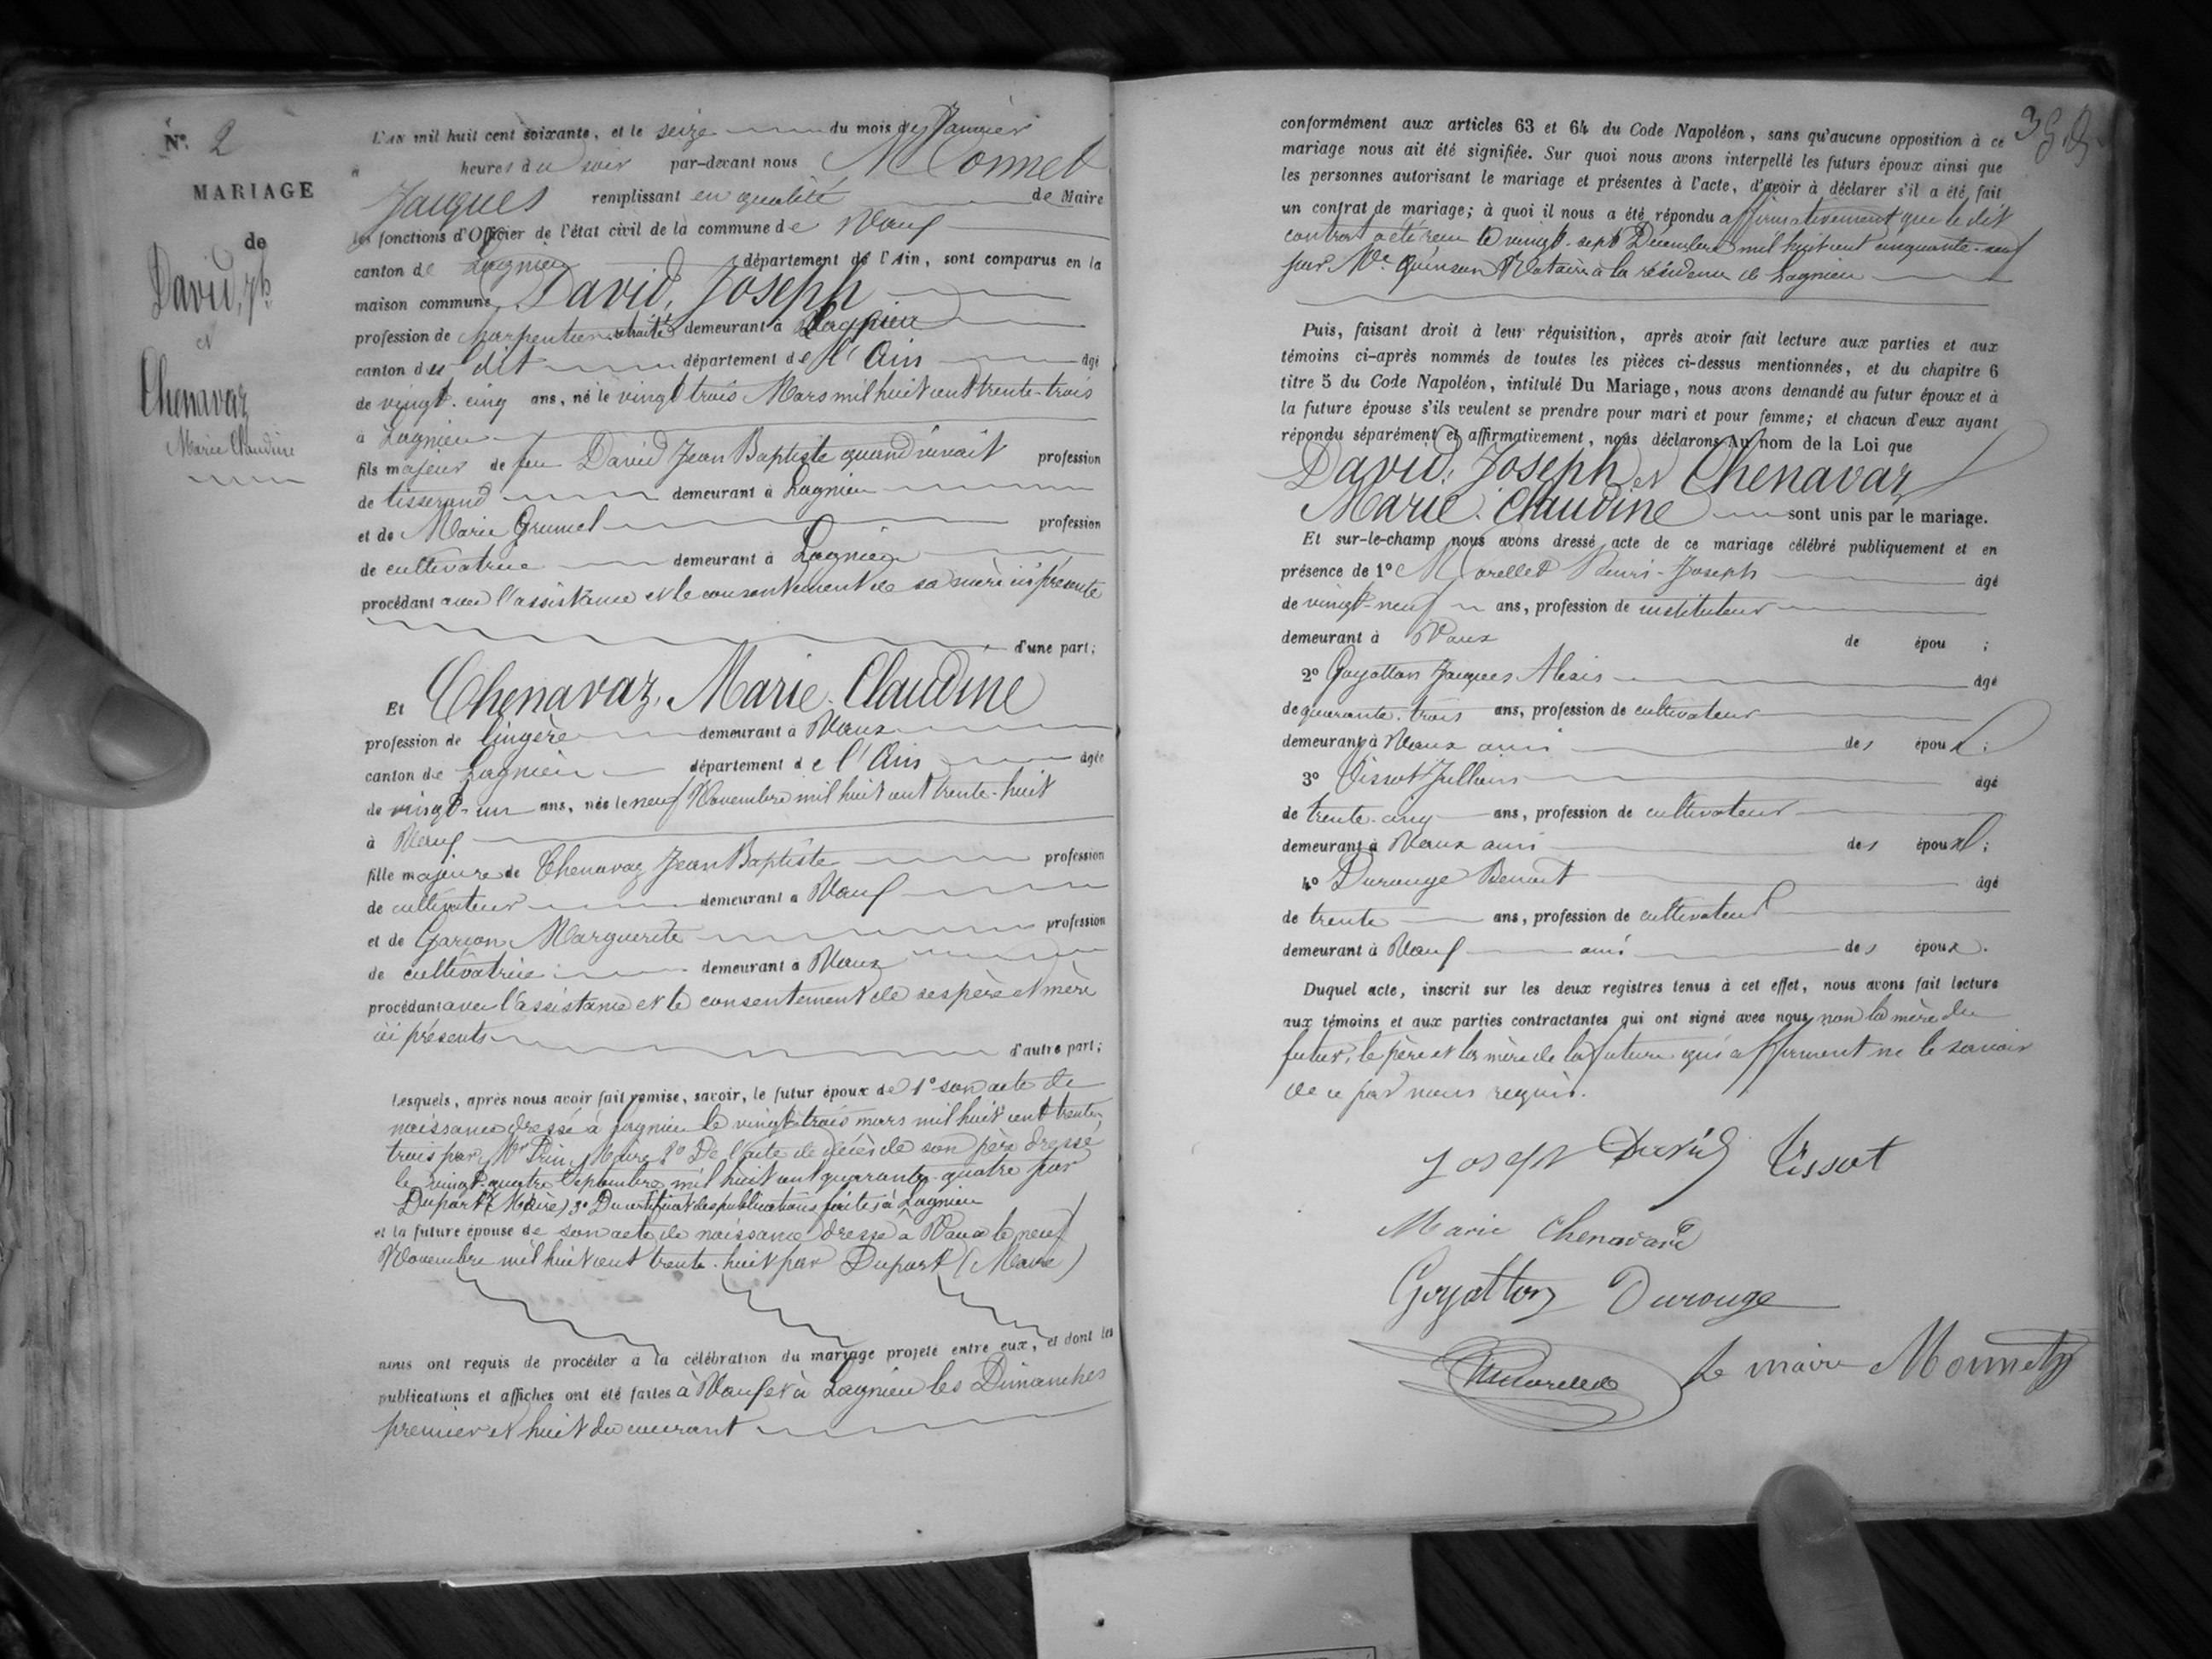 N.º 2
MARIAGE
de
David, Jh
et
Chenavaz
Marie Claudine
L'AN mil huit cent soixante, et le seize du mois de Janvier
à heures du soir par-devant nous Monnet
Jacques remplissant en qualité de Maire
les fonctions d'Officier de l'état civil de la commune de Vaux
canton de Lagnieu département de l'Ain, sont comparus en la
maison commune David, Joseph
profession de charpentier demeurant à Lagnieu
canton du dit département de l'Ain âgé
de vingt-cinq ans, né le vingt trois Mars mil huit cent trente-trois
à Lagnieu
fils majeur de feu David Jean Baptiste quand vivait profession
de tisserand demeurant à Lagnieu
et de Marie Grumel profession
de cultivatrice demeurant à Lagnieu
procédant avec l'assistance et le consentement de sa mère ici présente
d'une part;
Et Chenavaz, Marie-Claudine
profession de lingère demeurant à Vaux
canton de Lagnieu département de l'Ain âgée
de vingt-un ans, née le neuf Novembre mil huit cent trente-huit
à Vaux
fille majeure de Chenavaz Jean Baptiste profession
de cultivateur demeurant à Vaux
et de Garçon Marguerite profession
de cultivatrice demeurant à Vaux
procédant avec l'assistance et le consentement de ses père et mère
ici présents
d'autre part;
Lesquels, après nous avoir fait remise, savoir, le futur époux de 1º son acte de
naissance dressé à Lagnieu le vingt-trois mars mil huit cent trente-
trois par Mr Maire 2º De l'acte de décès de son père dressé
le vingt-quatre Septembre mil huit cent quarante-quatre par
Dupart (Maire) 3º Du certificat des publications faites à Lagnieu
et la future épouse de son acte de naissance dressé à Vaux le neuf
Novembre mil huit cent trente-huit par Dupart (Maire)
nous ont requis de procéder à la célébration du mariage projeté entre eux, et dont les
publications et affiches ont été faites à Vaux et à Lagnieu les Dimanches
premier et huit du courant
conformément aux articles 63 et 64 du Code Napoléon, sans qu'aucune opposition à ce
mariage nous ait été signifiée. Sur quoi nous avons interpellé les futurs époux ainsi que
les personnes autorisant le mariage et présentes à l'acte, d'avoir à déclarer s'il a été fait
un contrat de mariage; à quoi il nous a été répondu affirmativement que le dit
contrat a été reçu le vingt-sept Décembre mil huit cent cinquante-neuf
par Me Quinson Notaire à la résidence de Lagnieu
Puis, faisant droit à leur réquisition, après avoir fait lecture aux parties et aux
témoins ci-après nommés de toutes les pièces ci-dessus mentionnées, et du chapitre 6
titre 5 du Code Napoléon, intitulé Du Mariage, nous avons demandé au futur époux et à
la future épouse s'ils veulent se prendre pour mari et pour femme; et chacun d'eux ayant
répondu séparément et affirmativement, nous déclarons Au nom de la Loi que
David, Joseph et Chenavaz
Marie-Claudine sont unis par le mariage.
Et sur-le-champ nous avons dressé acte de ce mariage célébré publiquement et en
présence de 1º Morellet Henri-Joseph âgé
de vingt-neuf ans, profession de instituteur
demeurant à Vaux de épou ;
2º Goyatton Jacques Alexis âgé
de quarante-trois ans, profession de cultivateur
demeurant à Vaux ami des époux;
3º Tissot Julhein âgé
de trente-cinq ans, profession de cultivateur
demeurant à Vaux ami des époux;
4º Durouge Benoit âgé
de trente ans, profession de cultivateur
demeurant à Vaux ami des époux.
Duquel acte, inscrit sur les deux registres tenus à cet effet, nous avons fait lecture
aux témoins et aux parties contractantes qui ont signé avec nous, non la mère du
futur, le père et la mère de la future qui affirment ne le savoir
de ce par nous requis.
Joseph David Tissot
Marie Chenavard
Goyatton Durouge
Morellet Le maire Monnet